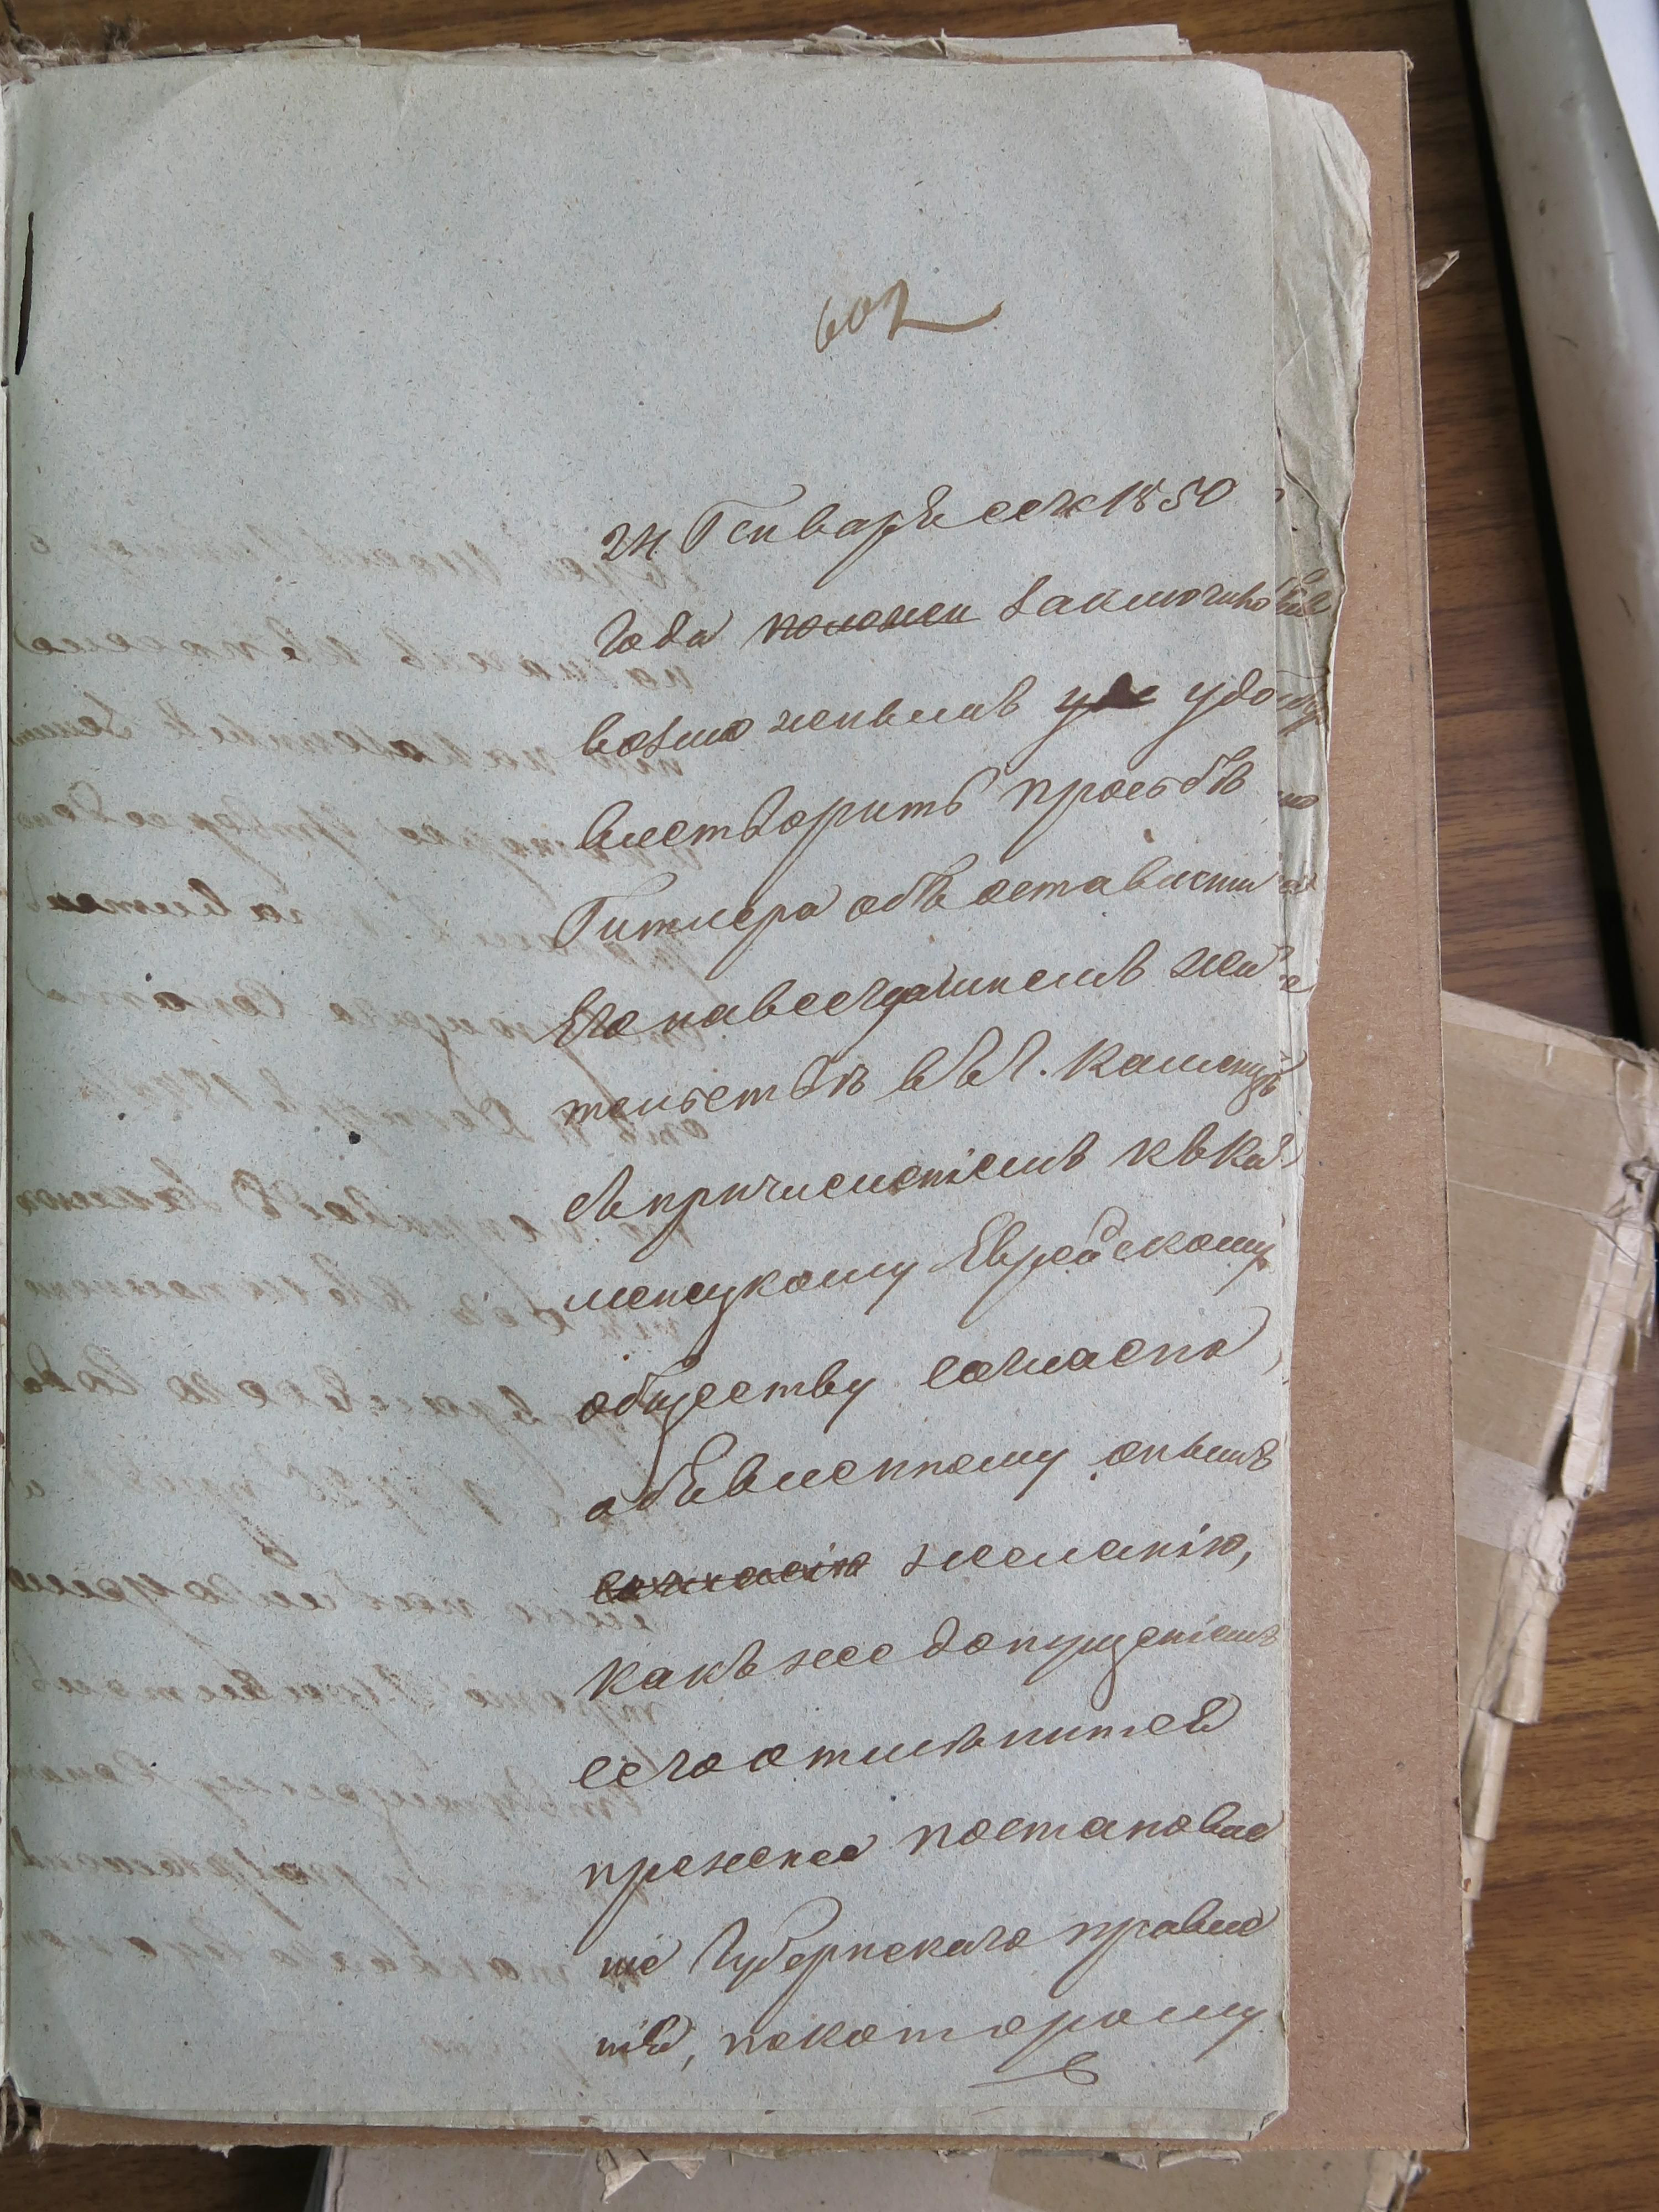 602
24 Генваря сего 1850
года положен заключило
возможнымъ удо
влетворить прозьбѣ
Гитлера объ оставленіи
его навсегда на
тельствѣ въ г. Каменцѣ
съ причисленіемъ къ Ка
менецкому Еврейскому
обществу согласно
объявленному онымъ
согласію желанію,
какъ же допущеніемъ
сего отмѣнится
прежнее постановле
ніе Губернскаго правле
нія, по которому